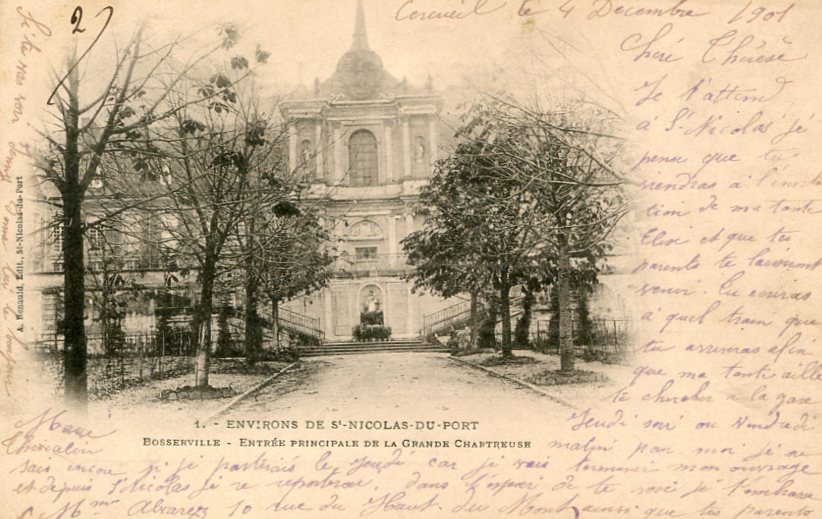 2
Cercueil le 4 Decembre 1901
Chéré Thérèse
Je t'attend
à St Nicolas jé
pense que tu
viendras à l'invita
tion de ma tante
Elise et que tes
parents te laisseront
venir. Tu
à quel train que
tu arriveras afin
que ma tante aille
te chercher à la gare
Jeudi soir ou Vendredi
matin, par moi je ne
sais encore si je partirais le Jeudi car je vais terminer mon ouvrage
et depuis St Nicolas je re dans l'espoir de te voir je t'embrasse
Marie
Chevalin
Mme Alvarez 10 rue du Haut du Mont ainsi que tes parents
A. Renauld, Édit., St-Nicolas-du-Port
1. - ENVIRONS DE St-NICOLAS-DU-PORT
BOSSERVILLE - ENTRÉE PRINCIPALE DE LA GRANDE CHARTREUSE